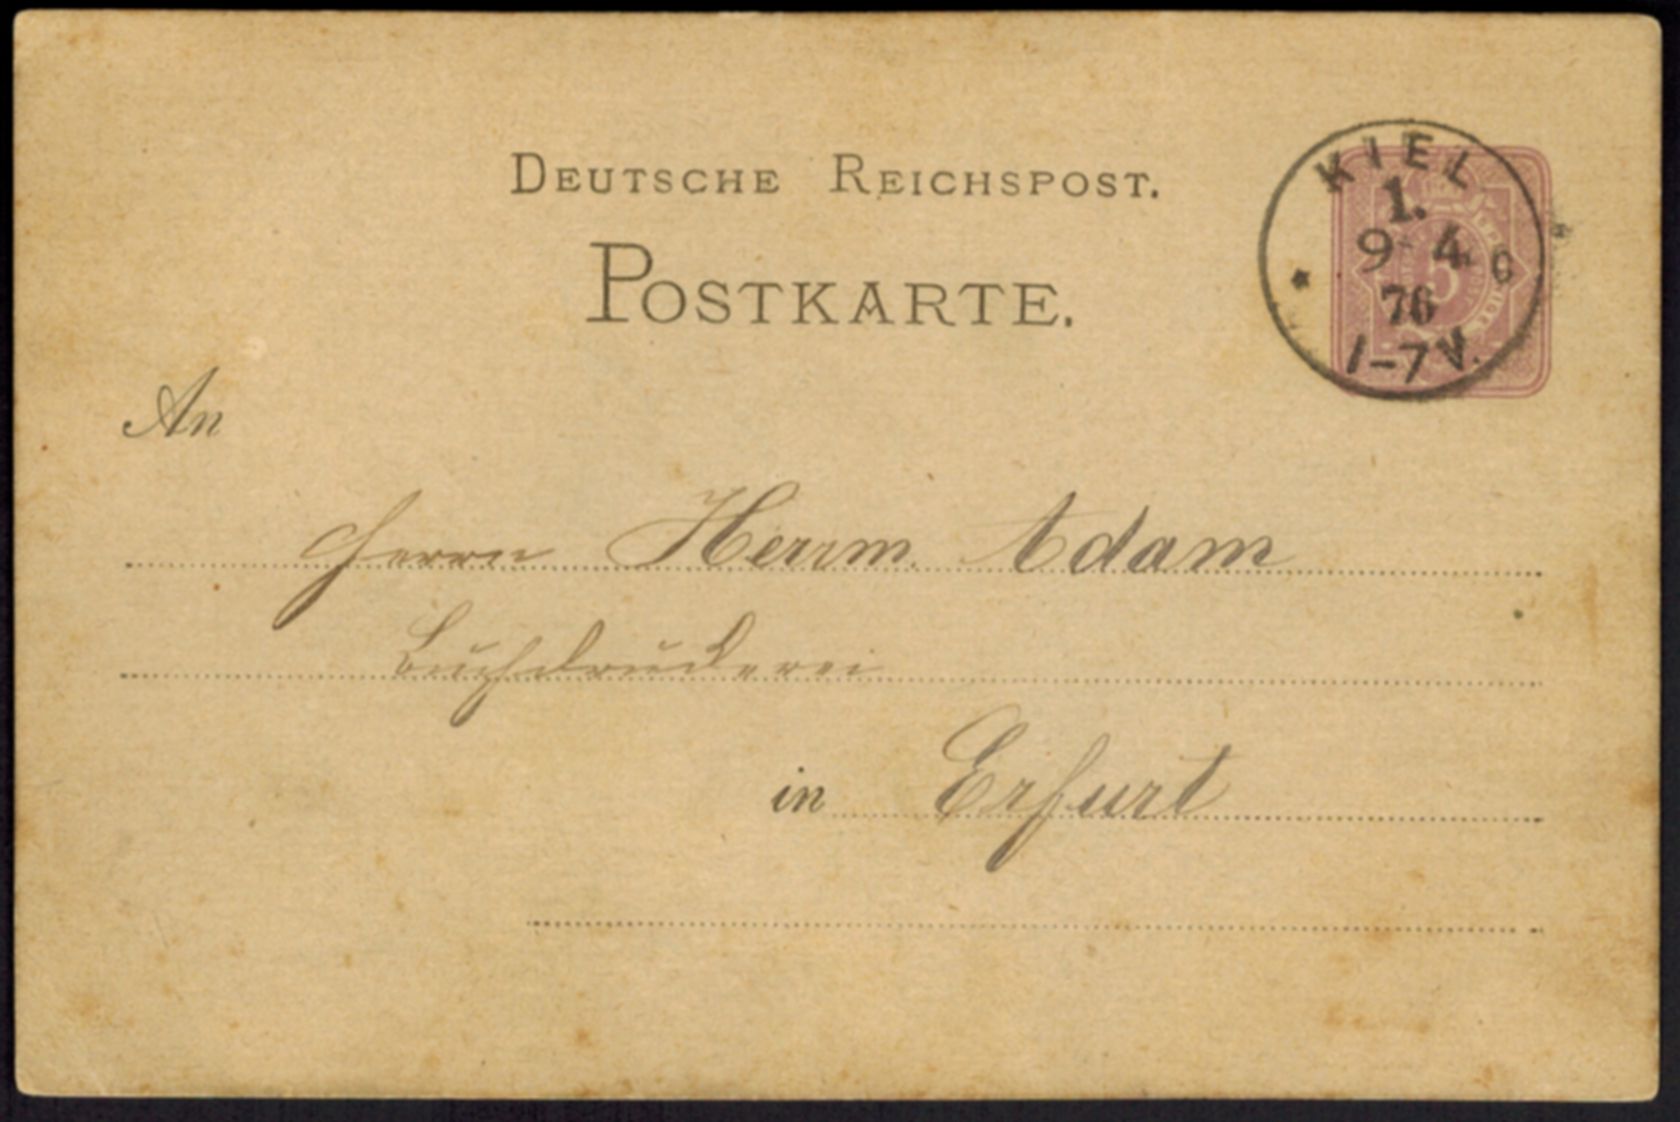 DEUTSCHE REICHSPOST.
POSTKARTE.
KIEL
1.
9 4
76
1-7 V.
5
An
Herrn Herrm. Adam
Buchdruckerei
in Erfurt